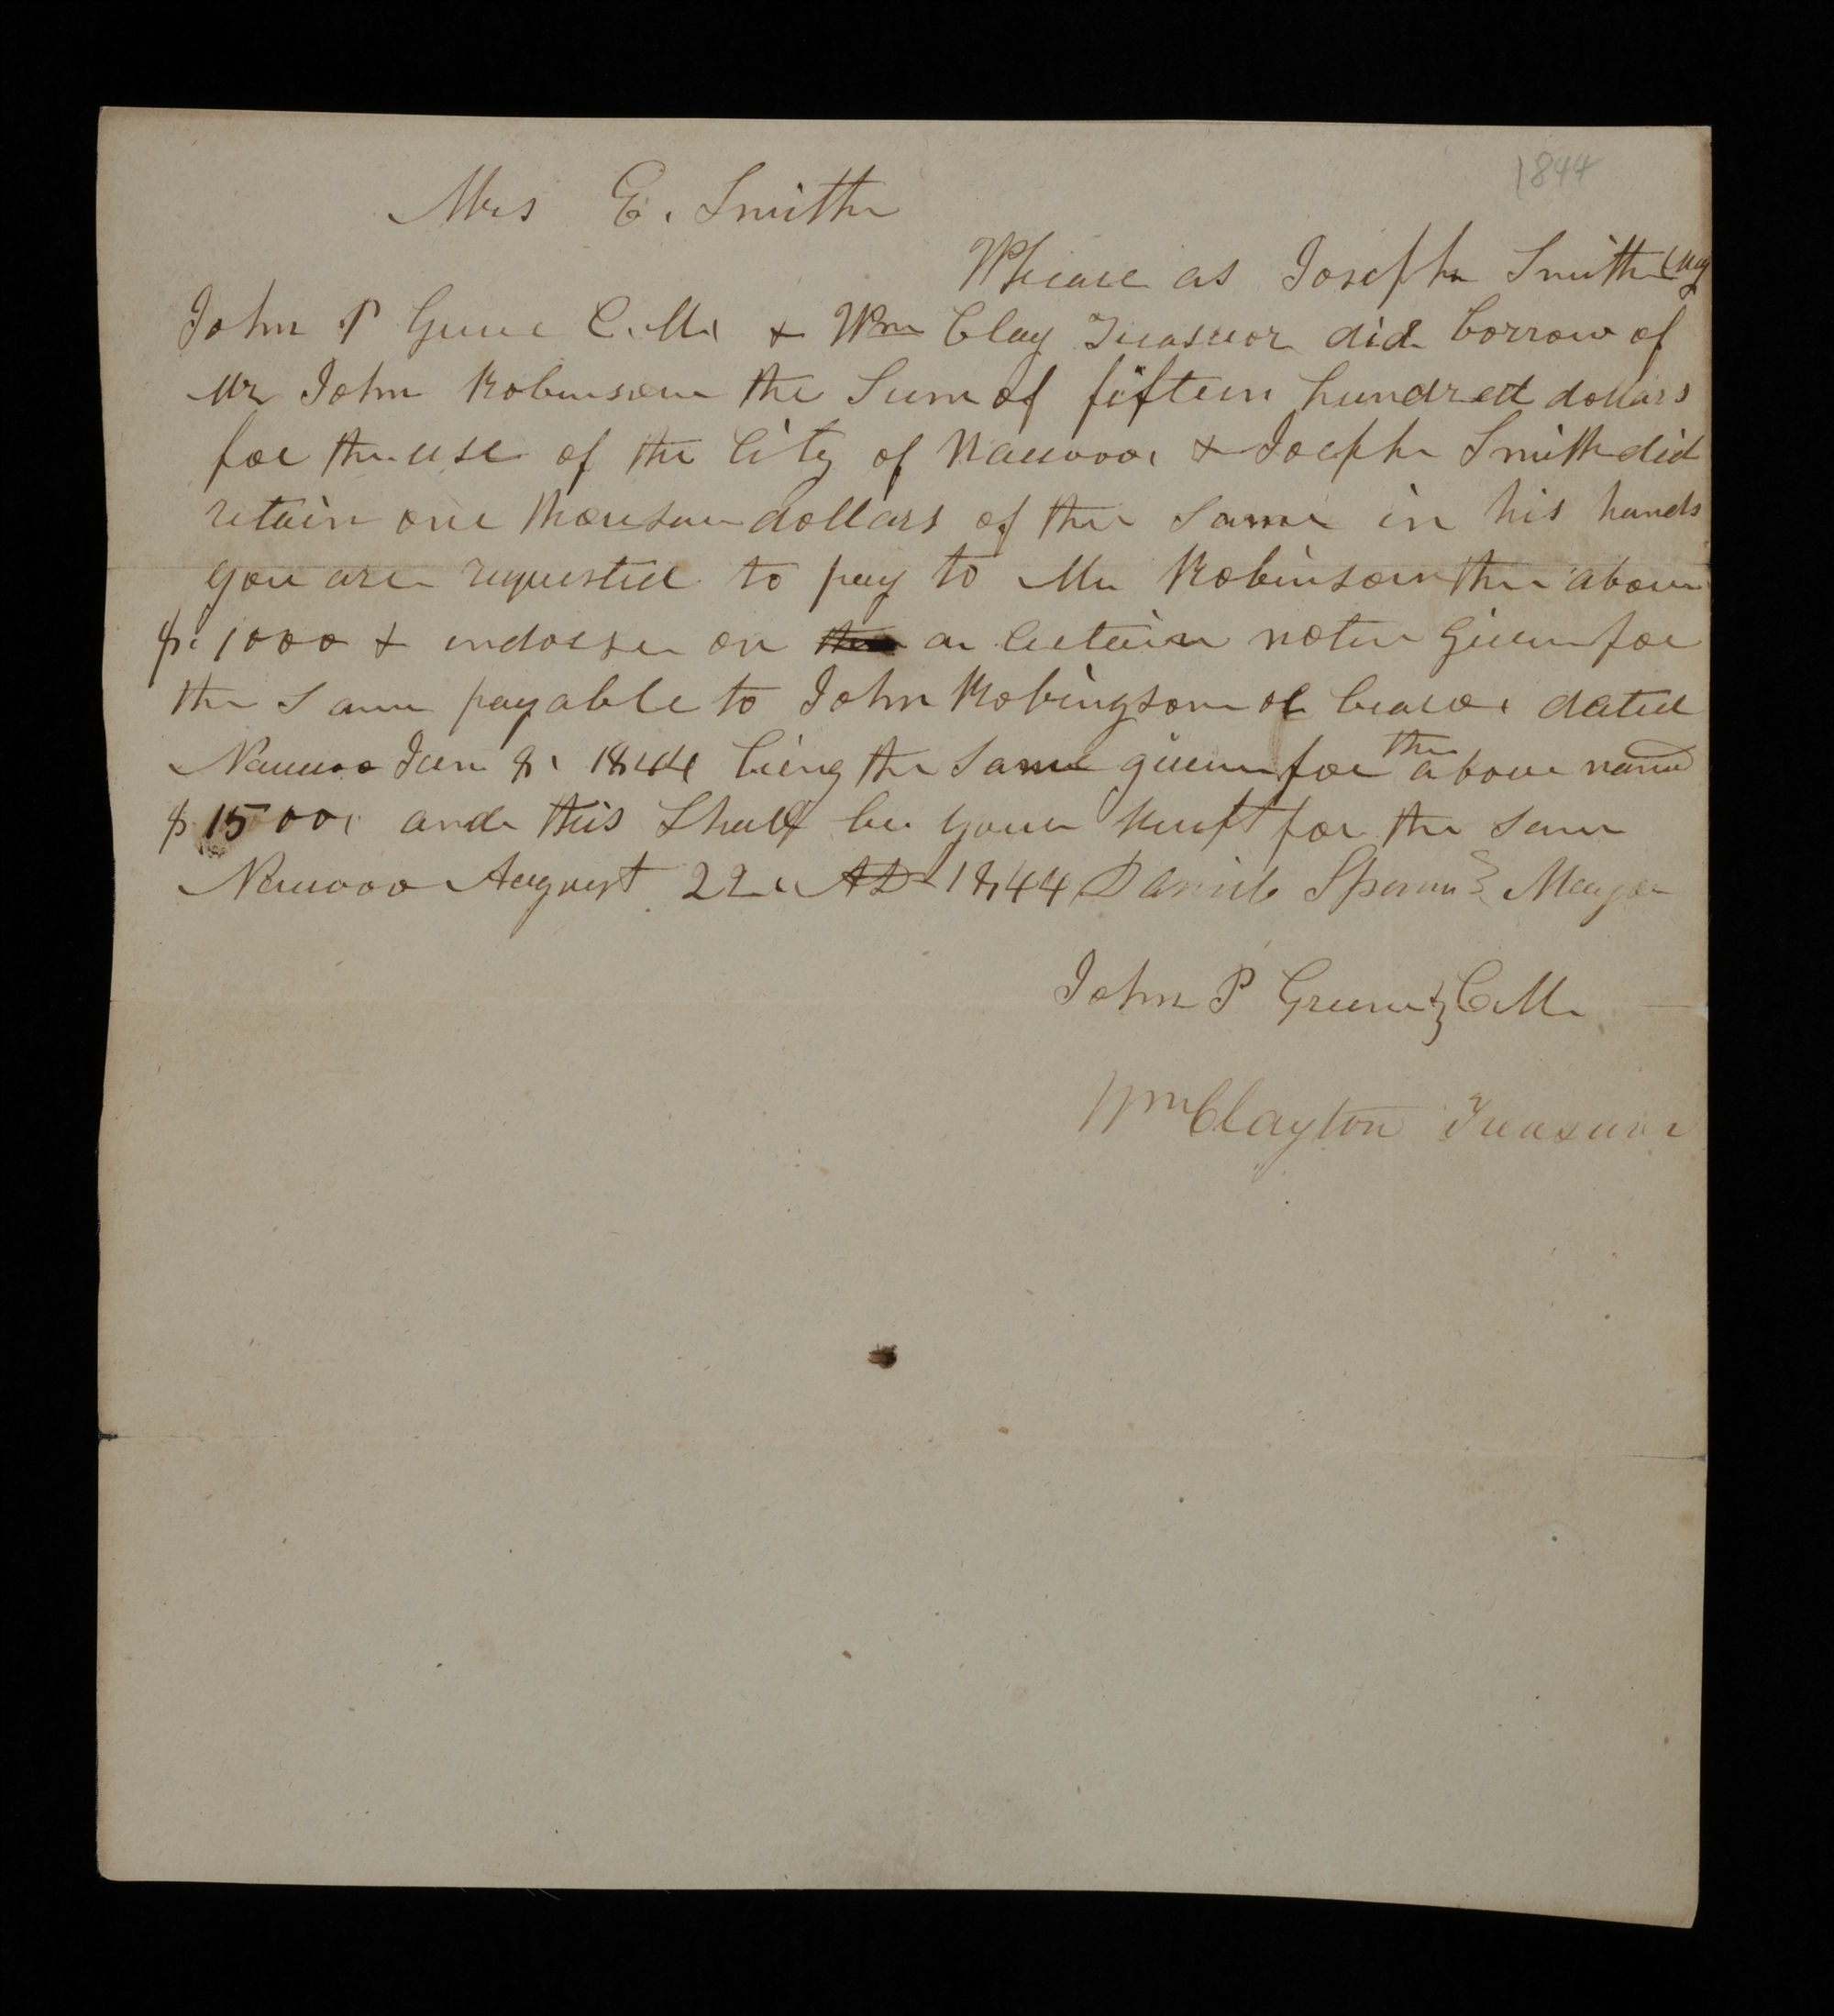 1844
Mrs E. Smith
Wheare as Joseph Smith May
John P Gree C. M. & Wm Clay Treasuror did borrow of
Mr John Robinson the Sum of fifteen hundred dollars
for the use of the City of Nauvoo, & Joseph Smith did
retain one thousan dollars of the same in his hands
you are requested to pay to Mr Robinson the above
$. 1000 & indorse on the a certain note given for
the same payable to John Robingson or bearer dated
Nauvoo Jun 8. 1844 being the same given for the above name
$1500. and this Shall be your recipt for the same
Nauvoo August 22. AD 1844 Daniel Spencer Mayor
John P Greene C. M.
Wm Clayton Treasurer